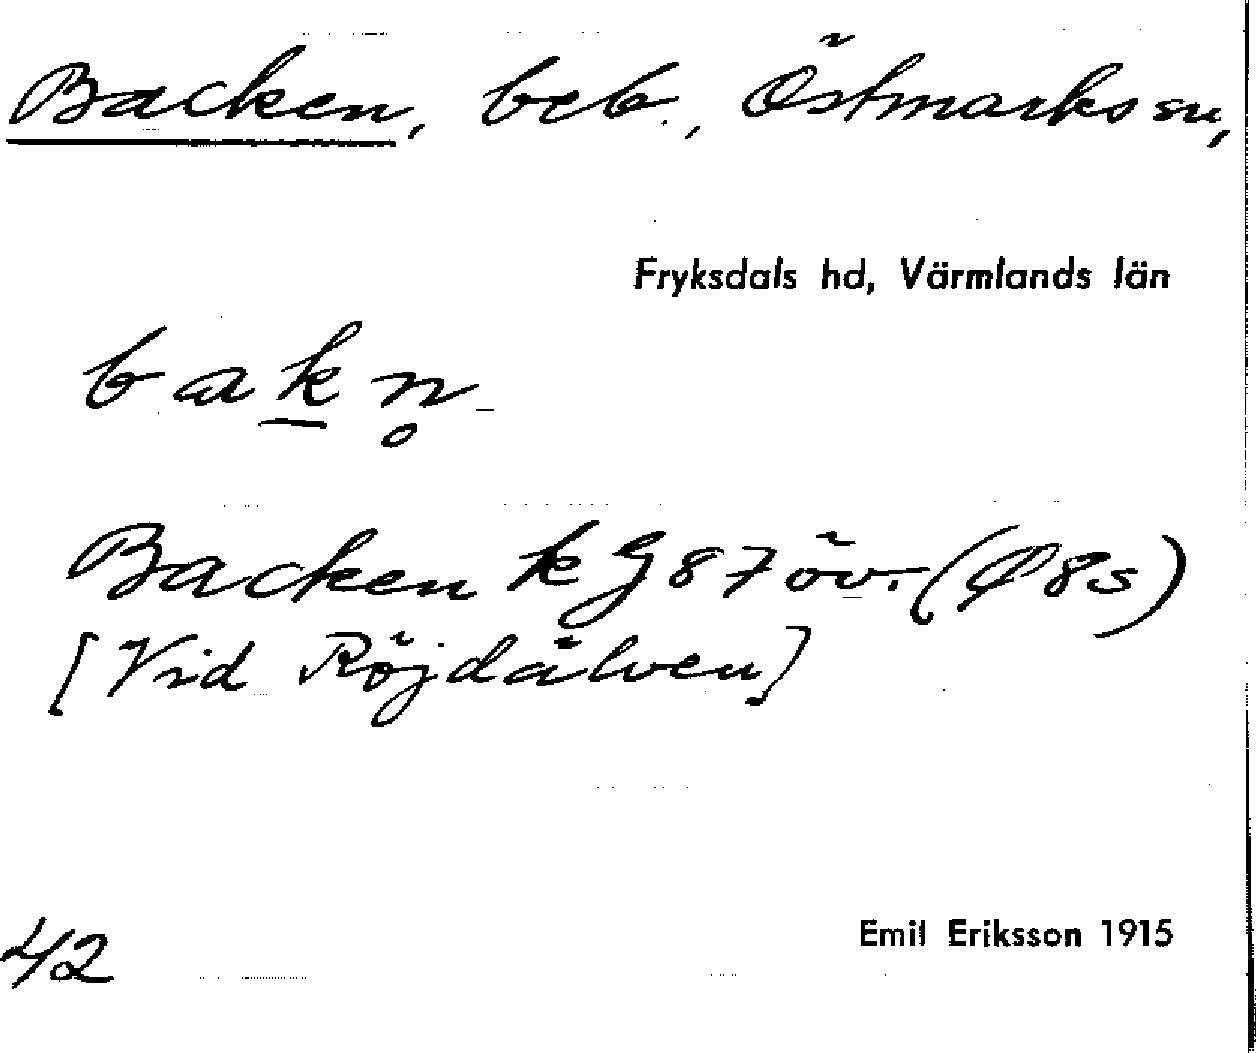 Backen, beb., Östmarks sn,
Fryksdals hd, Värmlands län
bakn̥
Backen k G 87 öv. (Ø 8s)
[Vid Röjdälven]
42
Emil Eriksson 1915